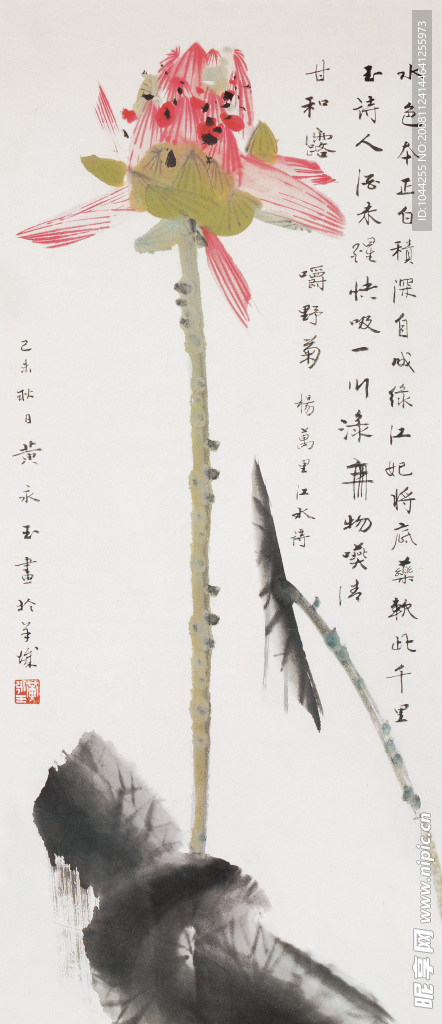 水色本正白積深自成綠江妃將底藥軟此千里
玉詩人酒未醒快吸一川淥無物嚥清
甘和露嚼野菊
楊萬里江水詩
己未秋日黄永玉畫於羊城
黄永玉
ID:1044255 NO:20081124144641255973
昵享网 www.nipic.cn